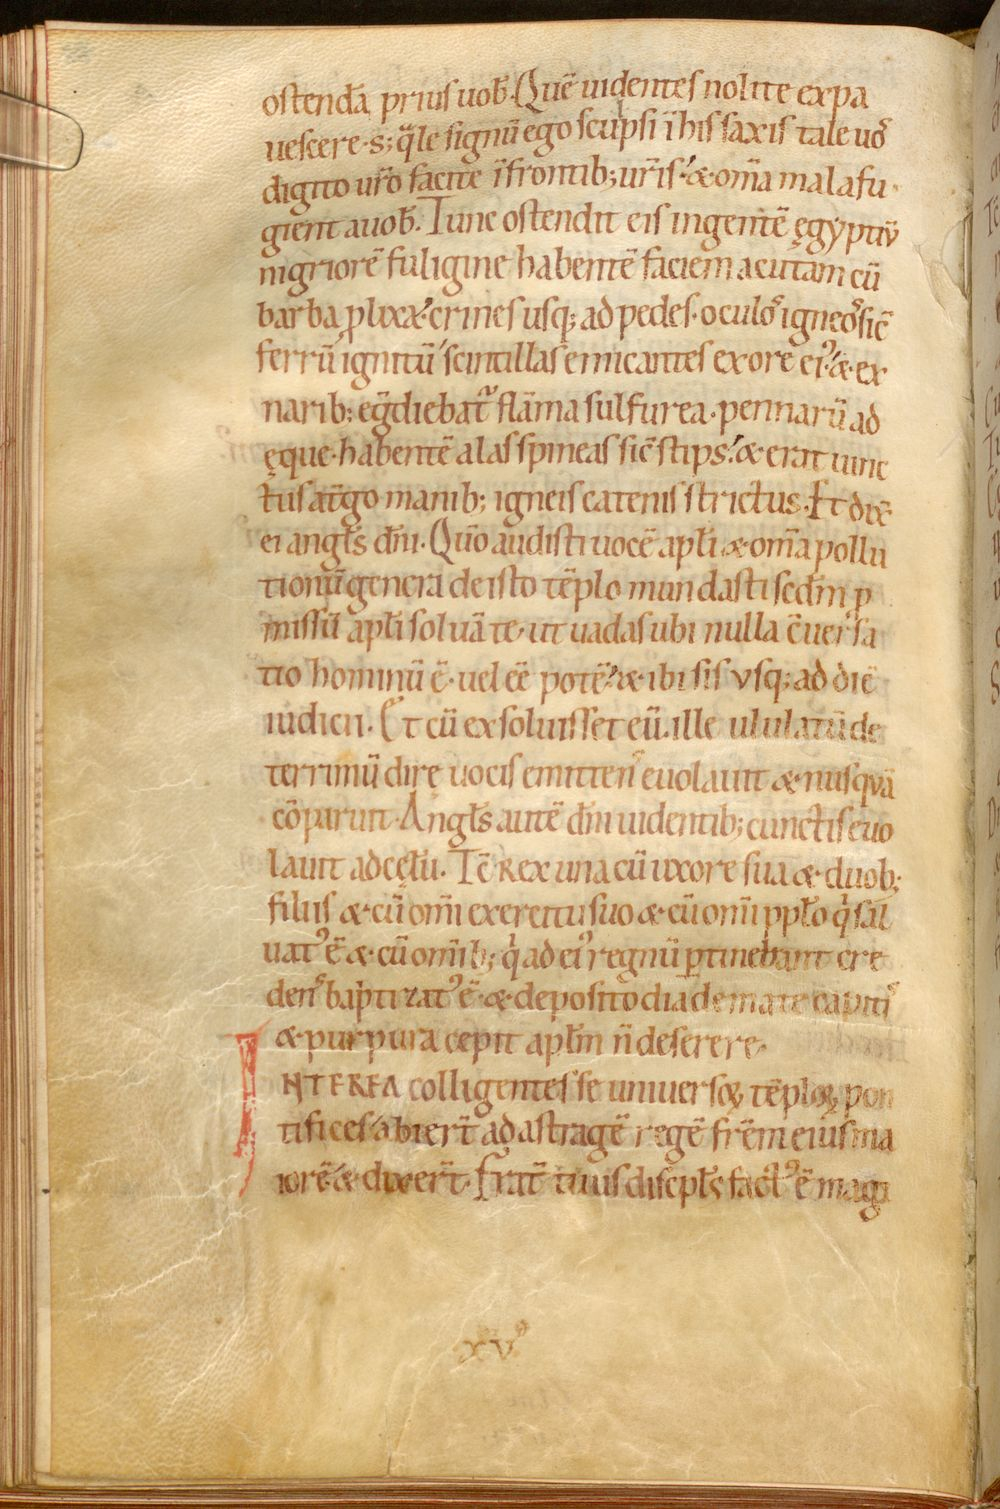 ostendā prius uob̄. Quē uidentes nolite expa
uescere. s; q̄le signū ego sculpsi ī his saxis tale uoˢ
digito ur̄o facite ī frontib; ur̄is. & om̄a mala fu
gient a uob̄. Tunc ostendit eis ingentē ęgyptiū
nigriorē fuligine habentē faciem acutam cū
barba plixa. crines usq; ad pedes. oculoˢ igneoˢ sic̄
ferrū ignitū scintillas emicantes ex ore ei᾽. & ex
narib; egdiebat᾽ flāma sulfurea. pennarū ad
ęque habentē alas spineas sic̄ stips. & erat uinc
tus at̄go manib; igneis catenis strictus. Et dix̄
ei angl̄s dn̄i. Qūo audisti uocē apl̄i & om̄a pollu
tionū genera de isto tēplo mundasti scd̄m p
missū apl̄i soluā te. ut uadas ubi nulla cōuersa
tio hominū ē. uel eē potē. & ibi sis usq; ad diē
iudicii. Et cū exsoluisset eū. ille ululatū de
terrimū dirę uocis emittenˢ euolauit & nusquā
cōparuit. Angl̄s autē dn̄i uidentib; cunctis euo
lauit ad cęlū. Tc̄ rex una cū uxore sua & duob;
filiis & cū om̄i exercitu suo & cū om̄i pplo q̄ sal
uat᾽ ē & cū om̄ib; q̄ ad ei᾽ regnū ptinebant cre
denˢ baptizat᾽ ē. & deposito diademate capitiˢ
& purpura cepit apl̄m n̄ deserere.
INTEREA colligentes se universoꝝ tēploꝝ pon
tifices abier̄t ad astragē regē fr̄em eius ma
iorē & dixer̄t. Frat̄ tuus discpl̄s fact᾽ ē magi
xvº